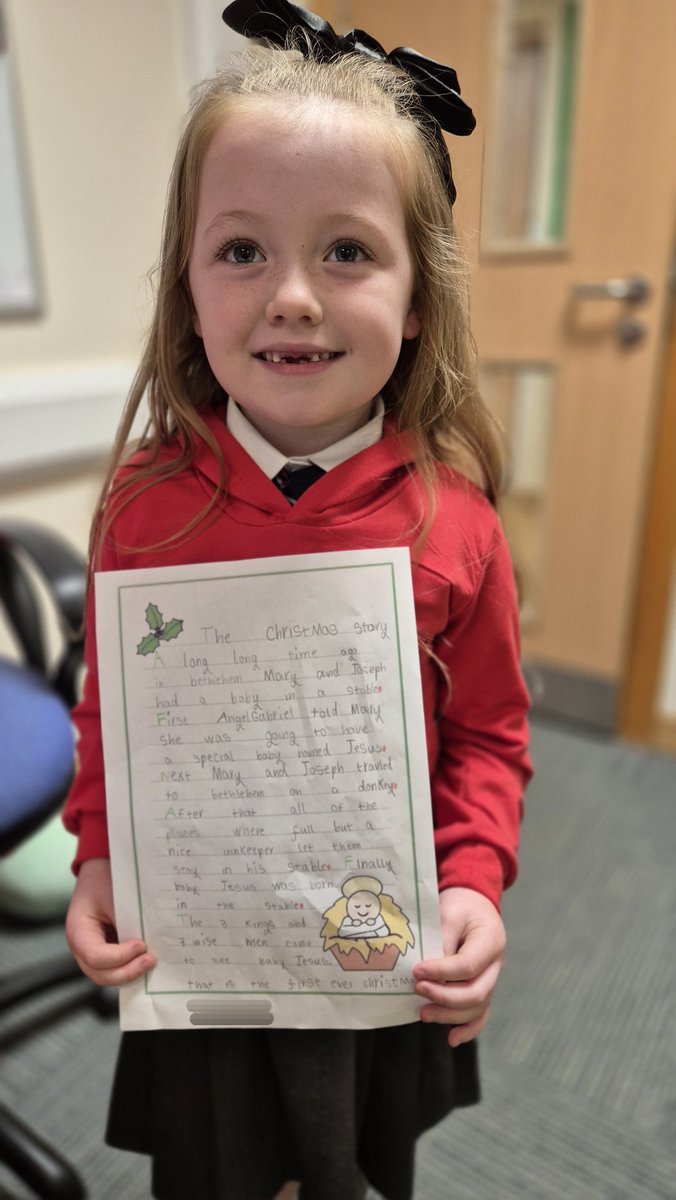 The Christmas story
A long long time ago
in bethlehem Mary and Joseph
had a baby in a stable.
First Angel Gabriel told Mary
she was going to have
a special baby named Jesus.
Next Mary and Joseph travled
to bethlehem on a donkey.
After that all of the
places where full but a
nice innkeeper let them
stay in his stable. Finally
baby Jesus was born
in the stable.
The 3 kings and
3 wise men came
to see baby Jesus.
that is the first ever christma